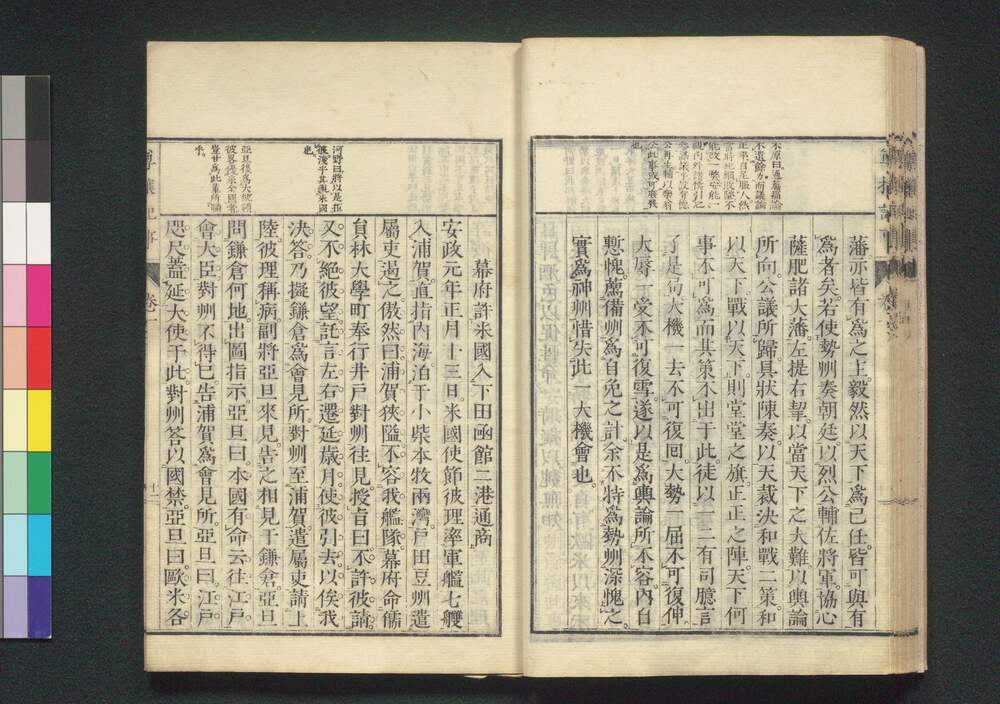 藩亦皆有爲之主毅然以天下爲己任皆可與有
爲者矣若使勢州奏朝廷以烈公輔佐將軍協心
薩肥諸大藩左提右挈以當天下之大難以輿論
所向公議所歸具狀陳奏以天裁決和戰二策和
以天下戰以天下則堂堂之旗正正之陣天下何
事不可爲而其策不出于此徒以一二有司臆言
了是句大機一去不可復回大勢一屈不可復伸
大辱一受不可復雪遂以是爲輿論所不容內自
慙愧薦備州爲自免之計余不特爲勢州深愧之
實爲神州惜失此一大機會也
河野曰將以是拒
彼淺乎其視米國
也
亞旦後爲大統領
彼畧後乎全國者
豈甘爲此輩所論
乎
幕府許米國入下田函館二港通商
安政元年正月十三日米國使節彼理率軍艦七艘
入浦賀直指內海泊于小柴本牧兩灣戶田豆州遣
屬吏遏之傲然曰浦賀狹隘不容我艦隊幕府命儒
員林大學町奉行井戶對州往見授旨曰不許彼請
又不絕彼望託言左右遷延歲月使彼引去以俟我
決答乃擬鎌倉爲會見所對州至浦賀遣屬吏請上
陸彼理稱病副將亞旦來見告之相見于鎌倉亞旦
問鎌倉何地出圖指示亞旦曰本國有命云往江戶
會大臣對州不得已告浦賀爲會見所亞旦曰江戶
咫尺蓋延大使于此對州答以國禁亞旦曰歐米各